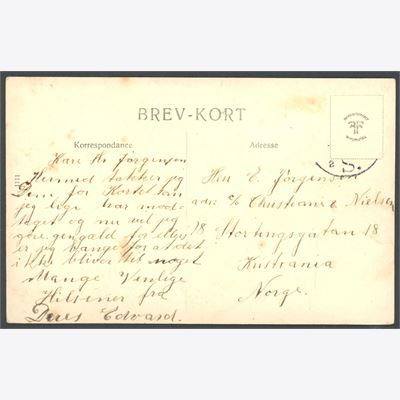 BREV-KORT
Korrespondance
Adresse
1111
Kære Hr Jörgensen
Hermed takker jeg
Dem for Kortet som
jeg lige har mod-
taget og nu vil jeg
göre gengæld for ellers
er jeg bange for at det
i kke bliver til noget
Mange Venlige
Hilsener fra
Deres Edvard.
Herr C. Jörgensen
adr: c/o Christiania Nielsen
18 Stortingsgatan 18
Kristiania
Norge.
2 S.